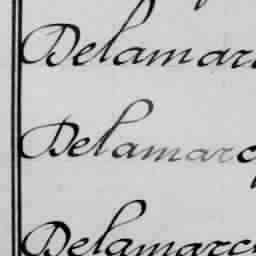 Delamar
Delamarc
Delamarc